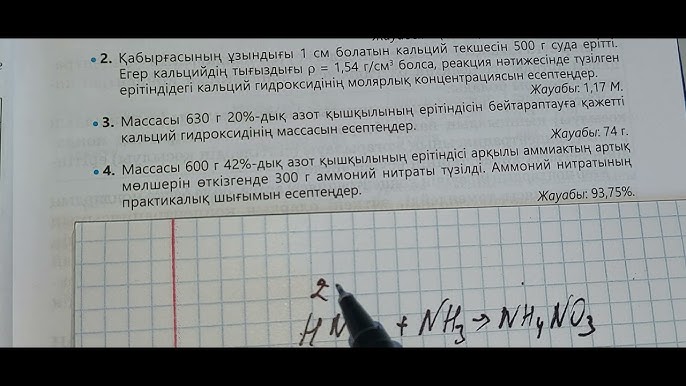 2. Қабырғасының ұзындығы 1 см болатын кальций текшесін 500 г суда ерітті.
Егер кальцийдің тығыздығы ρ = 1,54 г/см³ болса, реакция нәтижесінде түзілген
ерітіндідегі кальций гидроксидінің молярлық концентрациясын есептеңдер.
Жауабы: 1,17 М.
3. Массасы 630 г 20%-дық азот қышқылының ерітіндісін бейтараптауға қажетті
кальций гидроксидінің массасын есептеңдер.
Жауабы: 74 г.
4. Массасы 600 г 42%-дық азот қышқылының ерітіндісі арқылы аммиактың артық
мөлшерін өткізгенде 300 г аммоний нитраты түзілді. Аммоний нитратының
практикалық шығымын есептеңдер.
Жауабы: 93,75%.
2
HN + NH₃ → NH₄NO₃